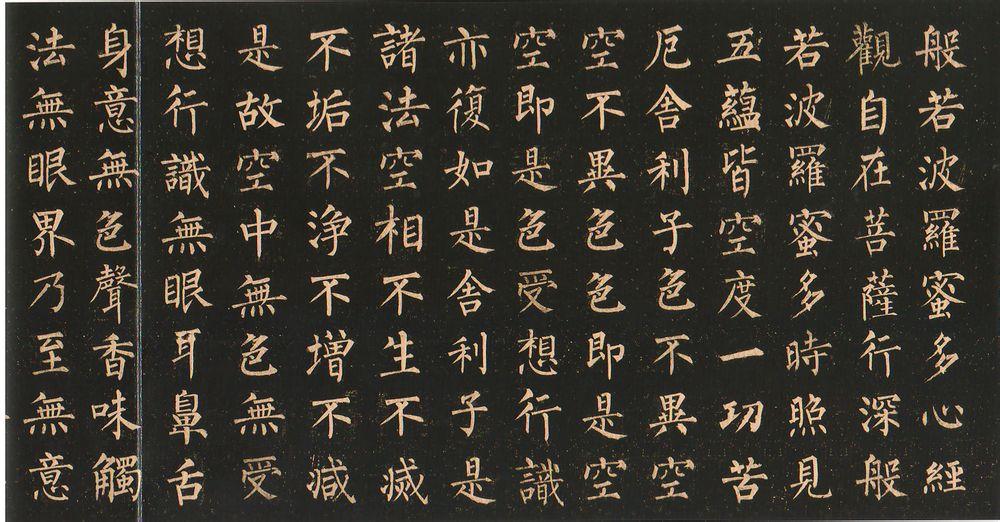 般若波羅蜜多心經
觀自在菩薩行深般
若波羅蜜多時照見
五蘊皆空度一切苦
厄舍利子色不異空
空不異色色即是空
空即是色受想行識
亦復如是舍利子是
諸法空相不生不滅
不垢不净不增不減
是故空中無色無受
想行識無眼耳鼻舌
身意無色聲香味觸
法無眼界乃至無意